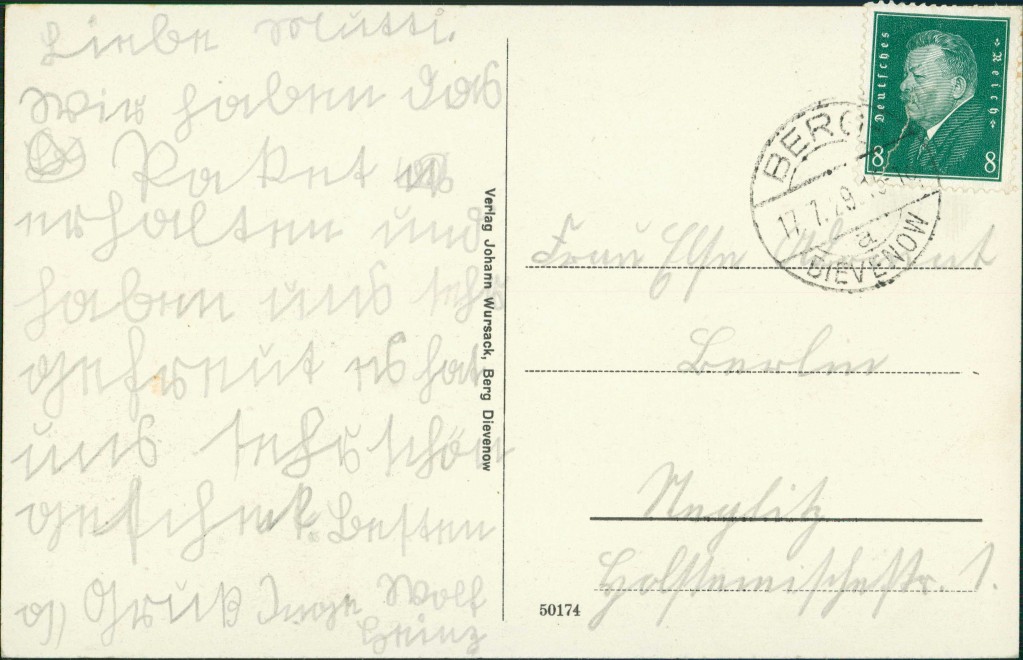 Liebe Mutti.
Wir haben das
Paket
erhalten und
haben uns sehr
gefreut es hat
uns sehr schön
geschmekt. Besten
Gruß Wolf
Heinz
Verlag Johann Wursack, Berg Dievenow
Deutsches Reich
8 8
BERG
17.7.29.
a
DIEVENOW
Frau Else
Berlin
Steglitz
Holsteinischestr. 1.
50174